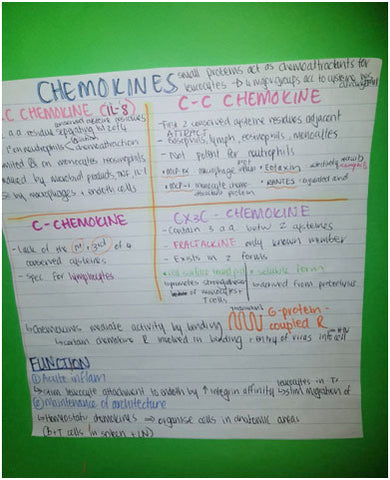 CHEMOKINES small proteins act as chemoattractants for
leucocytes → 4 major groups acc to cysteine res
arrangement
-C CHEMOKINE (IL-8)
conserved cysteine residues
a.a residue separating 1st
on neutrophils chemoattraction
limited on monocytes + eosinophils
induced by microbial products, TNF, IL-1
by macrophages + endoth cells
C-C CHEMOKINE
- First 2 conserved cysteine residues adjacent
ATTRACT
- basophils, lymph, eosinophils, monocytes
- Not potent for neutrophils
macrophage • Eotaxin selectively recruits
• MCP-1 monocyte chemo • RANTES regulated and
protein
C-CHEMOKINE
- Lack of the 1st + 3rd of 4
conserved cysteines
- Spec for lymphocytes
CX3C - CHEMOKINE
- Contain 3 a.a betw 2 cysteines
- FRACTALKINE only known member
- Exists in 2 forms
• cell surface bound • soluble form
promotes strong derived from proteolysis
of monocytes +
T cells
↳ Chemokines mediate activity by binding G-protein
coupled R
↳ certain chemokine R involved in binding + entry of virus into cell
HIV
FUNCTION
① Acute inflam
↳ stim leukocyte attachment to endoth by ↑ integrin affinity ↳ stim migration of
leukocytes in
② maintenance of architecture
↳ Homeostatic chemokines ⇒ organise cells in anatomic areas
(b + T cells in spleen + LN)